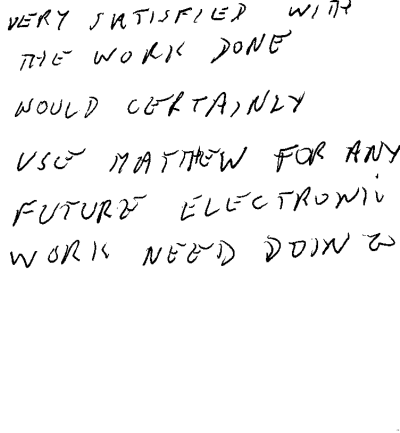 VERY SATISFIED WITH
THE WORK DONE
WOULD CERTAINLY
USE MATTHEW FOR ANY
FUTURE ELECTRONIC
WORK NEED DOING